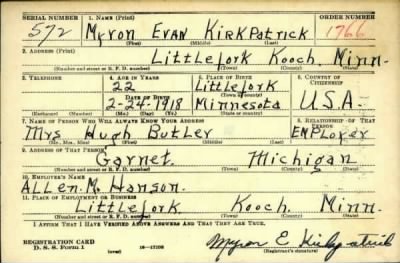 SERIAL NUMBER 1. NAME (Print) ORDER NUMBER
572 Myron Evan Kirkpatrick 1766
(First) (Middle) (Last)
2. ADDRESS (Print)
Littlefork Kooch. Minn.
(Number and street or R. F. D. number) (Town) (County) (State)
3. TELEPHONE 4. AGE IN YEARS 5. PLACE OF BIRTH 6. COUNTRY OF CITIZENSHIP
22 Littlefork
DATE OF BIRTH (Town or county)
2-24-1918 Minnesota U.S.A.
(Exchange) (Number) (Mo.) (Day) (Yr.) (State or country)
7. NAME OF PERSON WHO WILL ALWAYS KNOW YOUR ADDRESS 8. RELATIONSHIP OF THAT PERSON
Mrs Hugh Butler Employer
(Mr., Mrs., Miss) (First) (Middle) (Last)
9. ADDRESS OF THAT PERSON
Garnet. Michigan
(Number and street or R. F. D. number) (Town) (County) (State)
10. EMPLOYER'S NAME
Allen. M. Hanson.
11. PLACE OF EMPLOYMENT OR BUSINESS
Littlefork. Kooch. Minn.
(Number and street or R. F. D. number) (Town) (County) (State)
I AFFIRM THAT I HAVE VERIFIED ABOVE ANSWERS AND THAT THEY ARE TRUE.
REGISTRATION CARD
D. S. S. Form 1 (over) 16-17105 Myron E Kirkpatrick
(Registrant's signature)